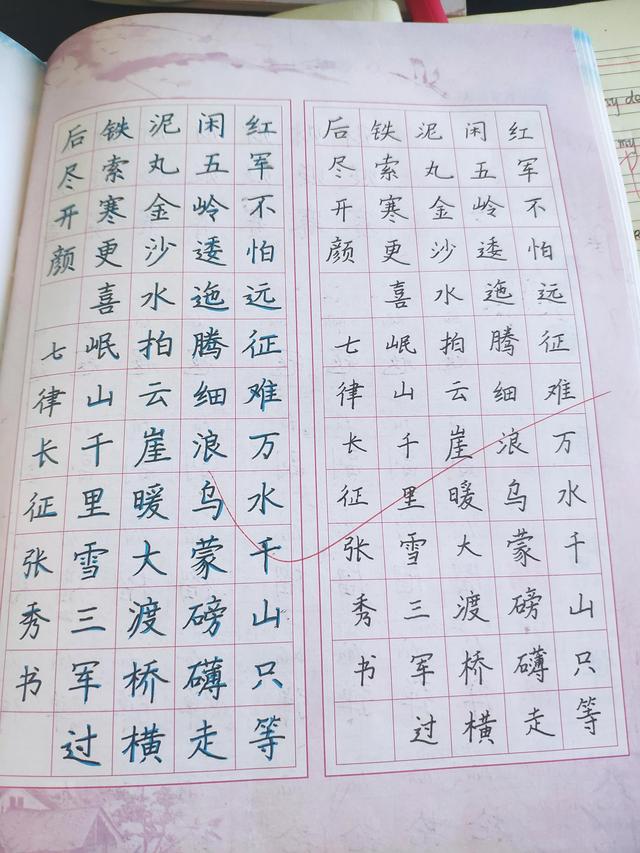 红军不怕远征难万水千山只等
闲五岭逶迤腾细浪乌蒙磅礴走
泥丸金沙水拍云崖暖大渡桥横
铁索寒更喜岷山千里雪三军过
后尽开颜 七律长征张秀书
红军不怕远征难万水千山只等
闲五岭逶迤腾细浪乌蒙磅礴走
泥丸金沙水拍云崖暖大渡桥横
铁索寒更喜岷山千里雪三军过
后尽开颜 七律长征张秀书
my